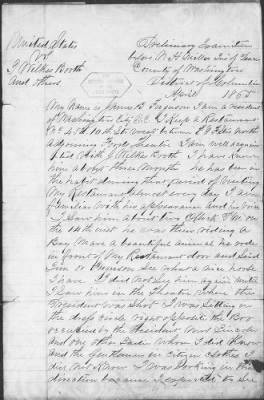 United States
vs
J Wilkes Booth
and others
Prelimary Examition
before A.B. Justice of Peace
County of Washington
District of Columbia
April 1865
My name is James P. Ferguson I am a resident
of Washington City D.C. I Keep a Restaurant
No 452 10th St. west between E & F Sts north
adjoining Fords Theatre I am well acquain
ted With J Wilkes Booth I have known
him about three months he has been in
the habit during that period of visiting
My Restaurant almost every day I am
familiar with his appearance and his voice
I Saw him about two O'Clock P.M. on
the 14th inst he was then riding a
Bay Mare a beautiful animal he rode
in front of my Restaurant door and Said
Jim or Ferguson See what a nice horse
I have I did not See him again until
I Saw him in the Theatre when the
President was Shot I was Sitting on
the dress circle right opposite the Box
occupied by the President Mrs Lincoln
and one other Lady whom I did know
and the gentleman in Citizen clothes I
did not know I was looking in the
direction because I expected to See